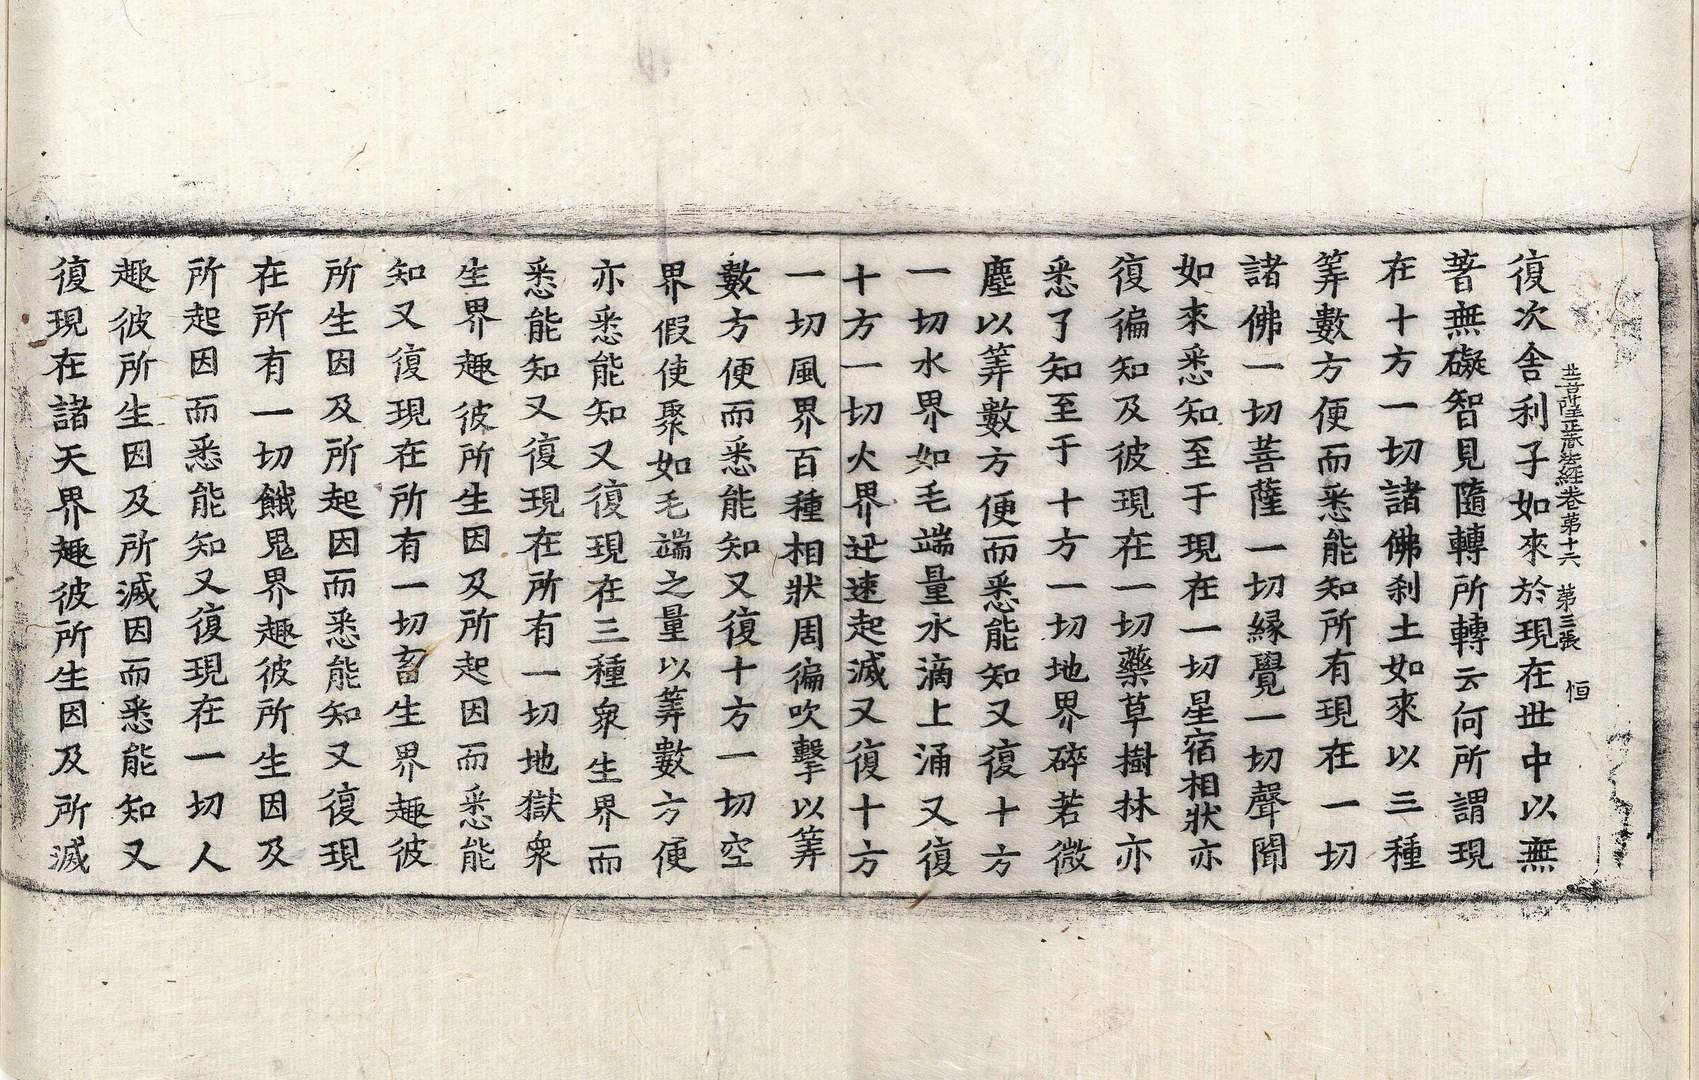 菩薩正齋經卷第十六　第三張　恒
復次舍利子如來於現在世中以無
著無礙智見隨轉所轉云何所謂現
在十方一切諸佛刹土如來以三種
筭數方便而悉能知所有現在一切
諸佛一切菩薩一切緣覺一切聲聞
如來悉知至于現在一切星宿相狀亦
復徧知及彼現在一切藥草樹林亦
悉了知至于十方一切地界碎若微
塵以筭數方便而悉能知又復十方
一切水界如毛端量水滴上涌又復
十方一切火界迅速起滅又復十方
一切風界百種相狀周徧吹擊以筭
數方便而悉能知又復十方一切空
界假使聚如毛端之量以筭數方便
亦悉能知又復現在三種衆生界而
悉能知又復現在所有一切地獄衆
生界趣彼所生因及所起因而悉能
知又復現在所有一切畜生界趣彼
所生因及所起因而悉能知又復現
在所有一切餓鬼界趣彼所生因及
所起因而悉能知又復現在一切人
趣彼所生因及所滅因而悉能知又
復現在諸天界趣彼所生因及所滅